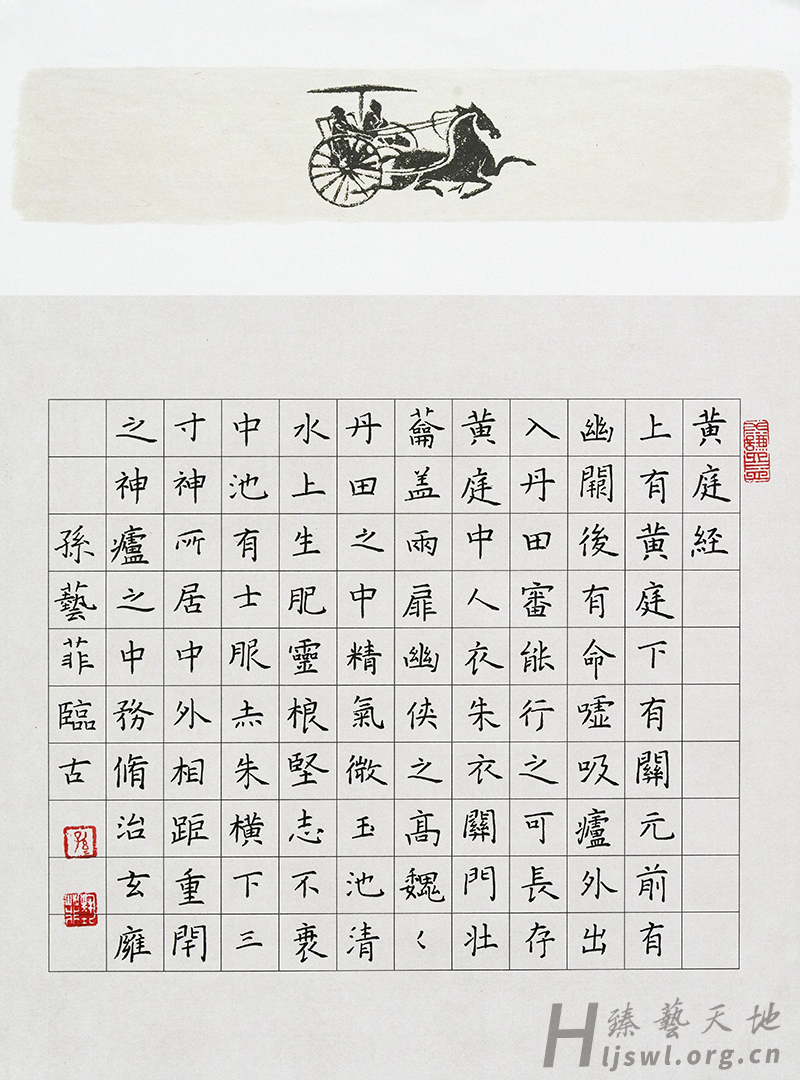 黄庭経
上有黄庭下有關元前有
幽闕後有命嘘吸廬外出
入丹田審能行之可長存
黄庭中人衣朱衣關門壮
蘥盖兩扉幽侠之高魏〱
丹田之中精氣微玉池清
水上生肥靈根堅志不衰
中池有士服赤朱横下三
寸神所居中外相距重閇
之神廬之中務脩治玄廱
孫藝菲臨古
臻藝天地
Hljswl.org.cn